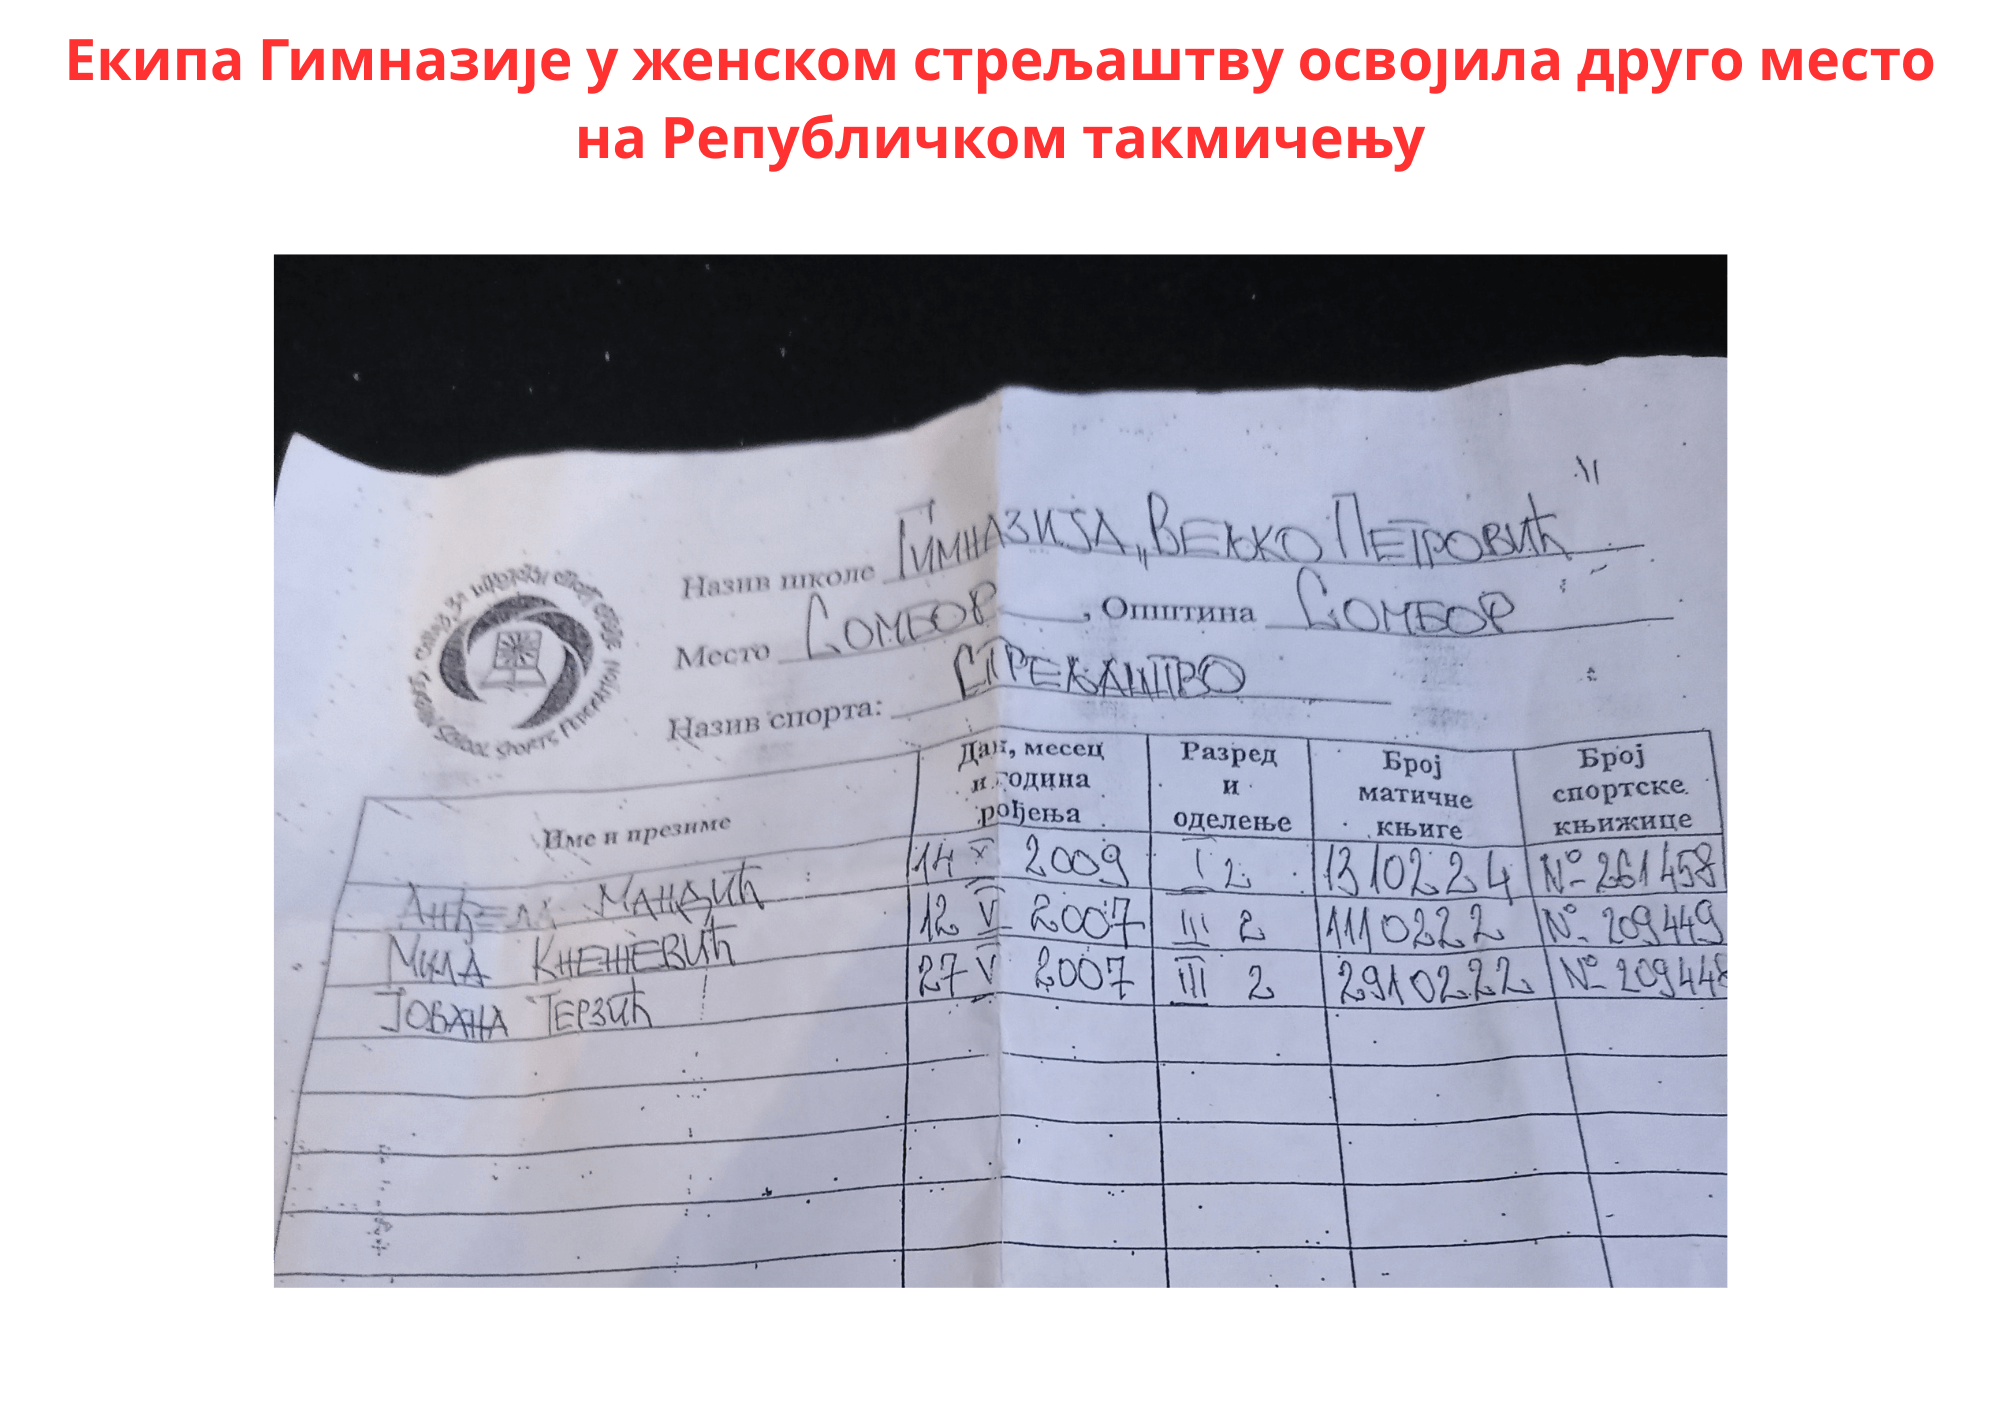 Екипа Гимназије у женском стрељаштву освојила друго место
на Републичком такмичењу
Назив школе Гимназија „Вељко Петровић"
Место Сомбор, Општина Сомбор
Назив спорта: Стрељаштво
Име и презиме
Дан, месец
и година
рођења
Разред
и
оделење
Број
матичне
књиге
Број
спортске
књижице
Анђела Мандић 14 X 2009 I 2 1310224 № 261458
Мила Кнежевић 12 V 2007 III 2 1110222 № 209449
Јована Терзић 27 V 2007 III 2 2910222 № 209448